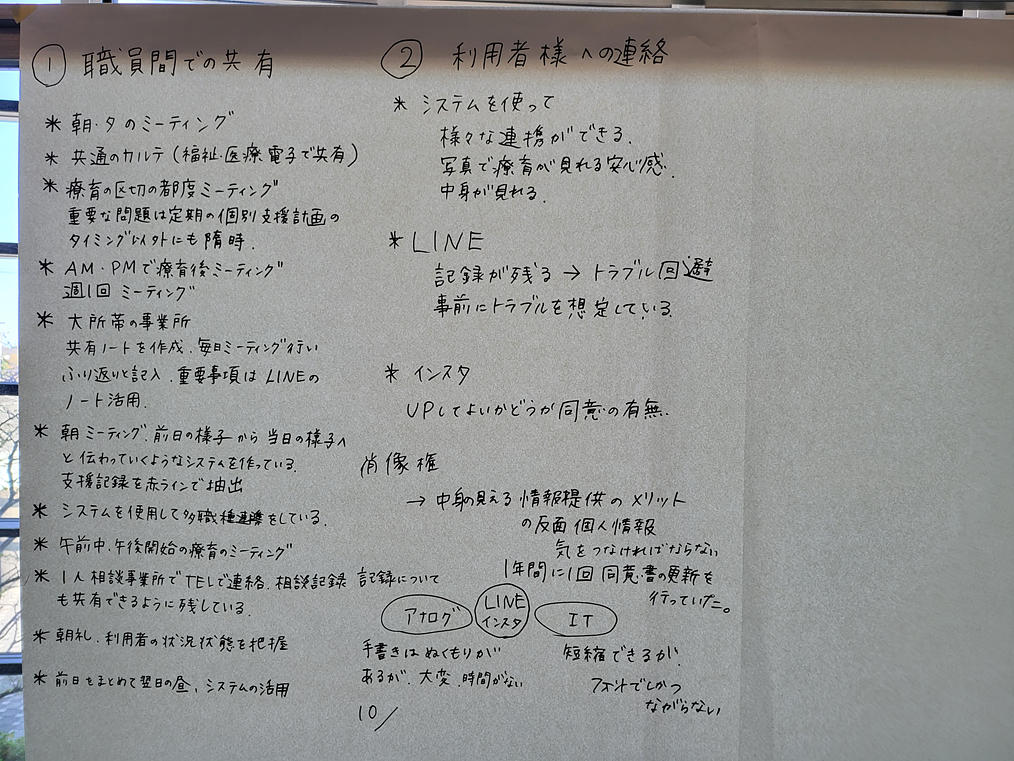 ① 職員間での共有
* 朝・夕のミーティング
* 共通のカルテ(福祉・医療 電子で共有)
* 療育の区切の都度ミーティング
重要な問題は定期の個別支援計画の
タイミング以外にも随時.
* AM・PMで療育後ミーティング
週1回 ミーティング
* 大所帯の事業所
共有ノートを作成、毎日ミーティング行い
ふり返りと記入、重要事項はLINEの
ノート活用.
* 朝ミーティング、前日の様子から当日の様子へ
と伝わっていくようなシステムを作っている.
支援記録を赤ラインで抽出
* システムを使用して多職種連携をしている.
* 午前中、午後開始の療育のミーティング
* 1人相談事業所でTELで連絡、相談記録
も共有できるように残している.
* 朝礼、利用者の状況状態を把握
* 前日をまとめて翌日の昼、システムの活用
② 利用者様への連絡
* システムを使って
様々な連携ができる.
写真で療育が見れる安心感.
中身が見れる.
* LINE
記録が残る → トラブル回避
事前にトラブルを想定している.
* インスタ
UPしてよいかどうか同意の有無.
肖像権
→ 中身の見える情報提供のメリット
の反面 個人情報
気をつなければならない
1年間に1回 同意書の更新を
行っていた。
記録について
アナログ
LINE
インスタ
IT
手書きはぬくもりが
あるが、大変、時間がない
短縮できるが、
フォントでしかつ
ながらない
10/